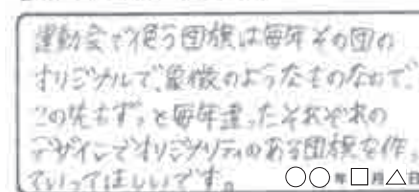 運動会で使う団旗は毎年その団の
オリジナルで、象徴のようなものなので、
この先もずっと毎年違ったそれぞれの
デザインでオリジナリティのある団旗を作っ
ていってほしいです。 ○○年□月△日